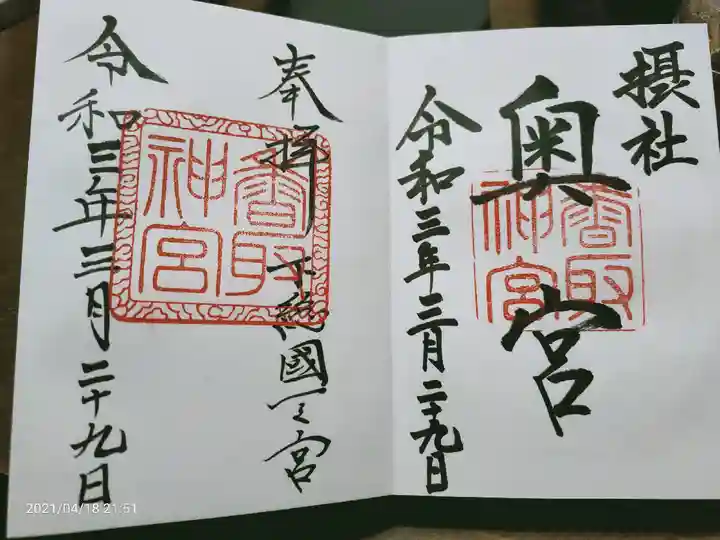 摂社
奥宮
香取
神宮
令和三年三月二十九日
奉拝 下総國一之宮
香取
神宮
令和三年三月二十九日
2021/04/18 21:51